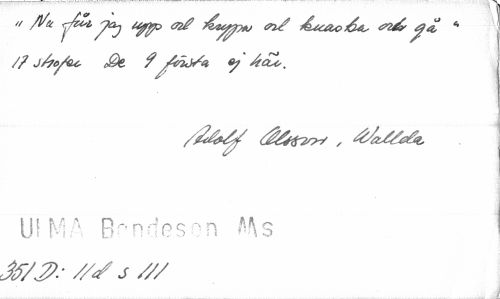 "Nu får jag upp och krypa och knaska och gå"
17 strofer De 9 första ej här.
Adolf Olsson, Wallda
ULMA Bondeson Ms
351 D: 11d s 111